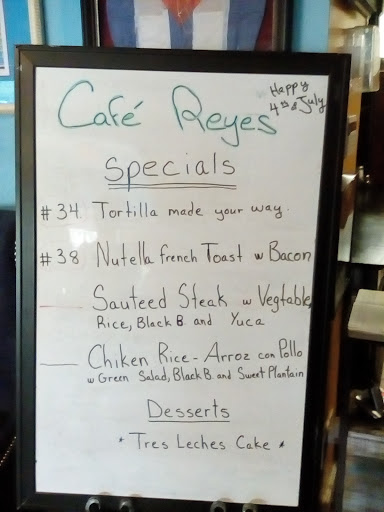 Café Reyes
Happy
4th of July
Specials
#34 Tortilla made your way.
#38 Nutella french Toast w Bacon
Sauteed Steak w Vegtable,
Rice, Black B. and Yuca
Chiken Rice - Arroz con Pollo
w Green Salad, Black B. and Sweet Plantain
Desserts
* Tres Leches Cake *